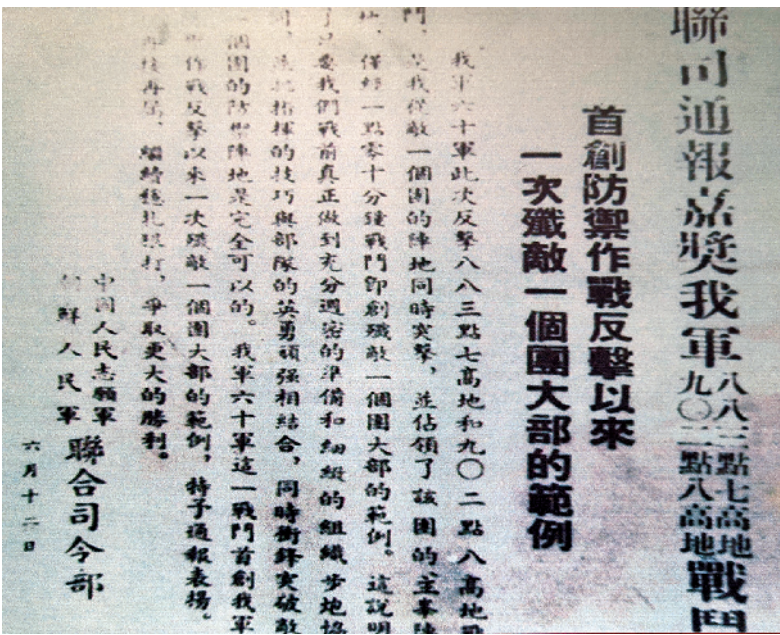 聯司通報嘉獎我軍八八三點七高地九〇二點八高地戰鬥
首創防禦作戰反擊以來
一次殲敵一個團大部的範例
我軍六十軍此次反擊八八三點七高地和九〇二點八高地戰
鬥,是我從敵一個團的陣地同時突擊,並佔領了該團的主峯陣
地,僅經一點零十分鐘戰鬥即創殲敵一個團大部的範例。這說明
了只要我們戰前真正做到充分週密的準備和細緻的組織步地協
同,指揮的技巧與部隊的英勇頑强相結合,同時衝鋒突破敵
一個團的防禦陣地是完全可以的。我軍六十軍這一戰鬥首創我軍
作戰反擊以來一次殲敵一個團大部的範例,特予通報表揚。
再接再厲,繼續穩扎狠打,爭取更大的勝利。
中國人民志願軍
朝鮮人民軍
聯合司令部
六月十二日